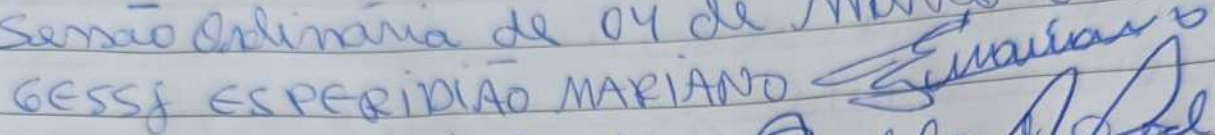 Sessão Ordinária de 04 de
GESSÍ ESPERIDIÃO MARIANO